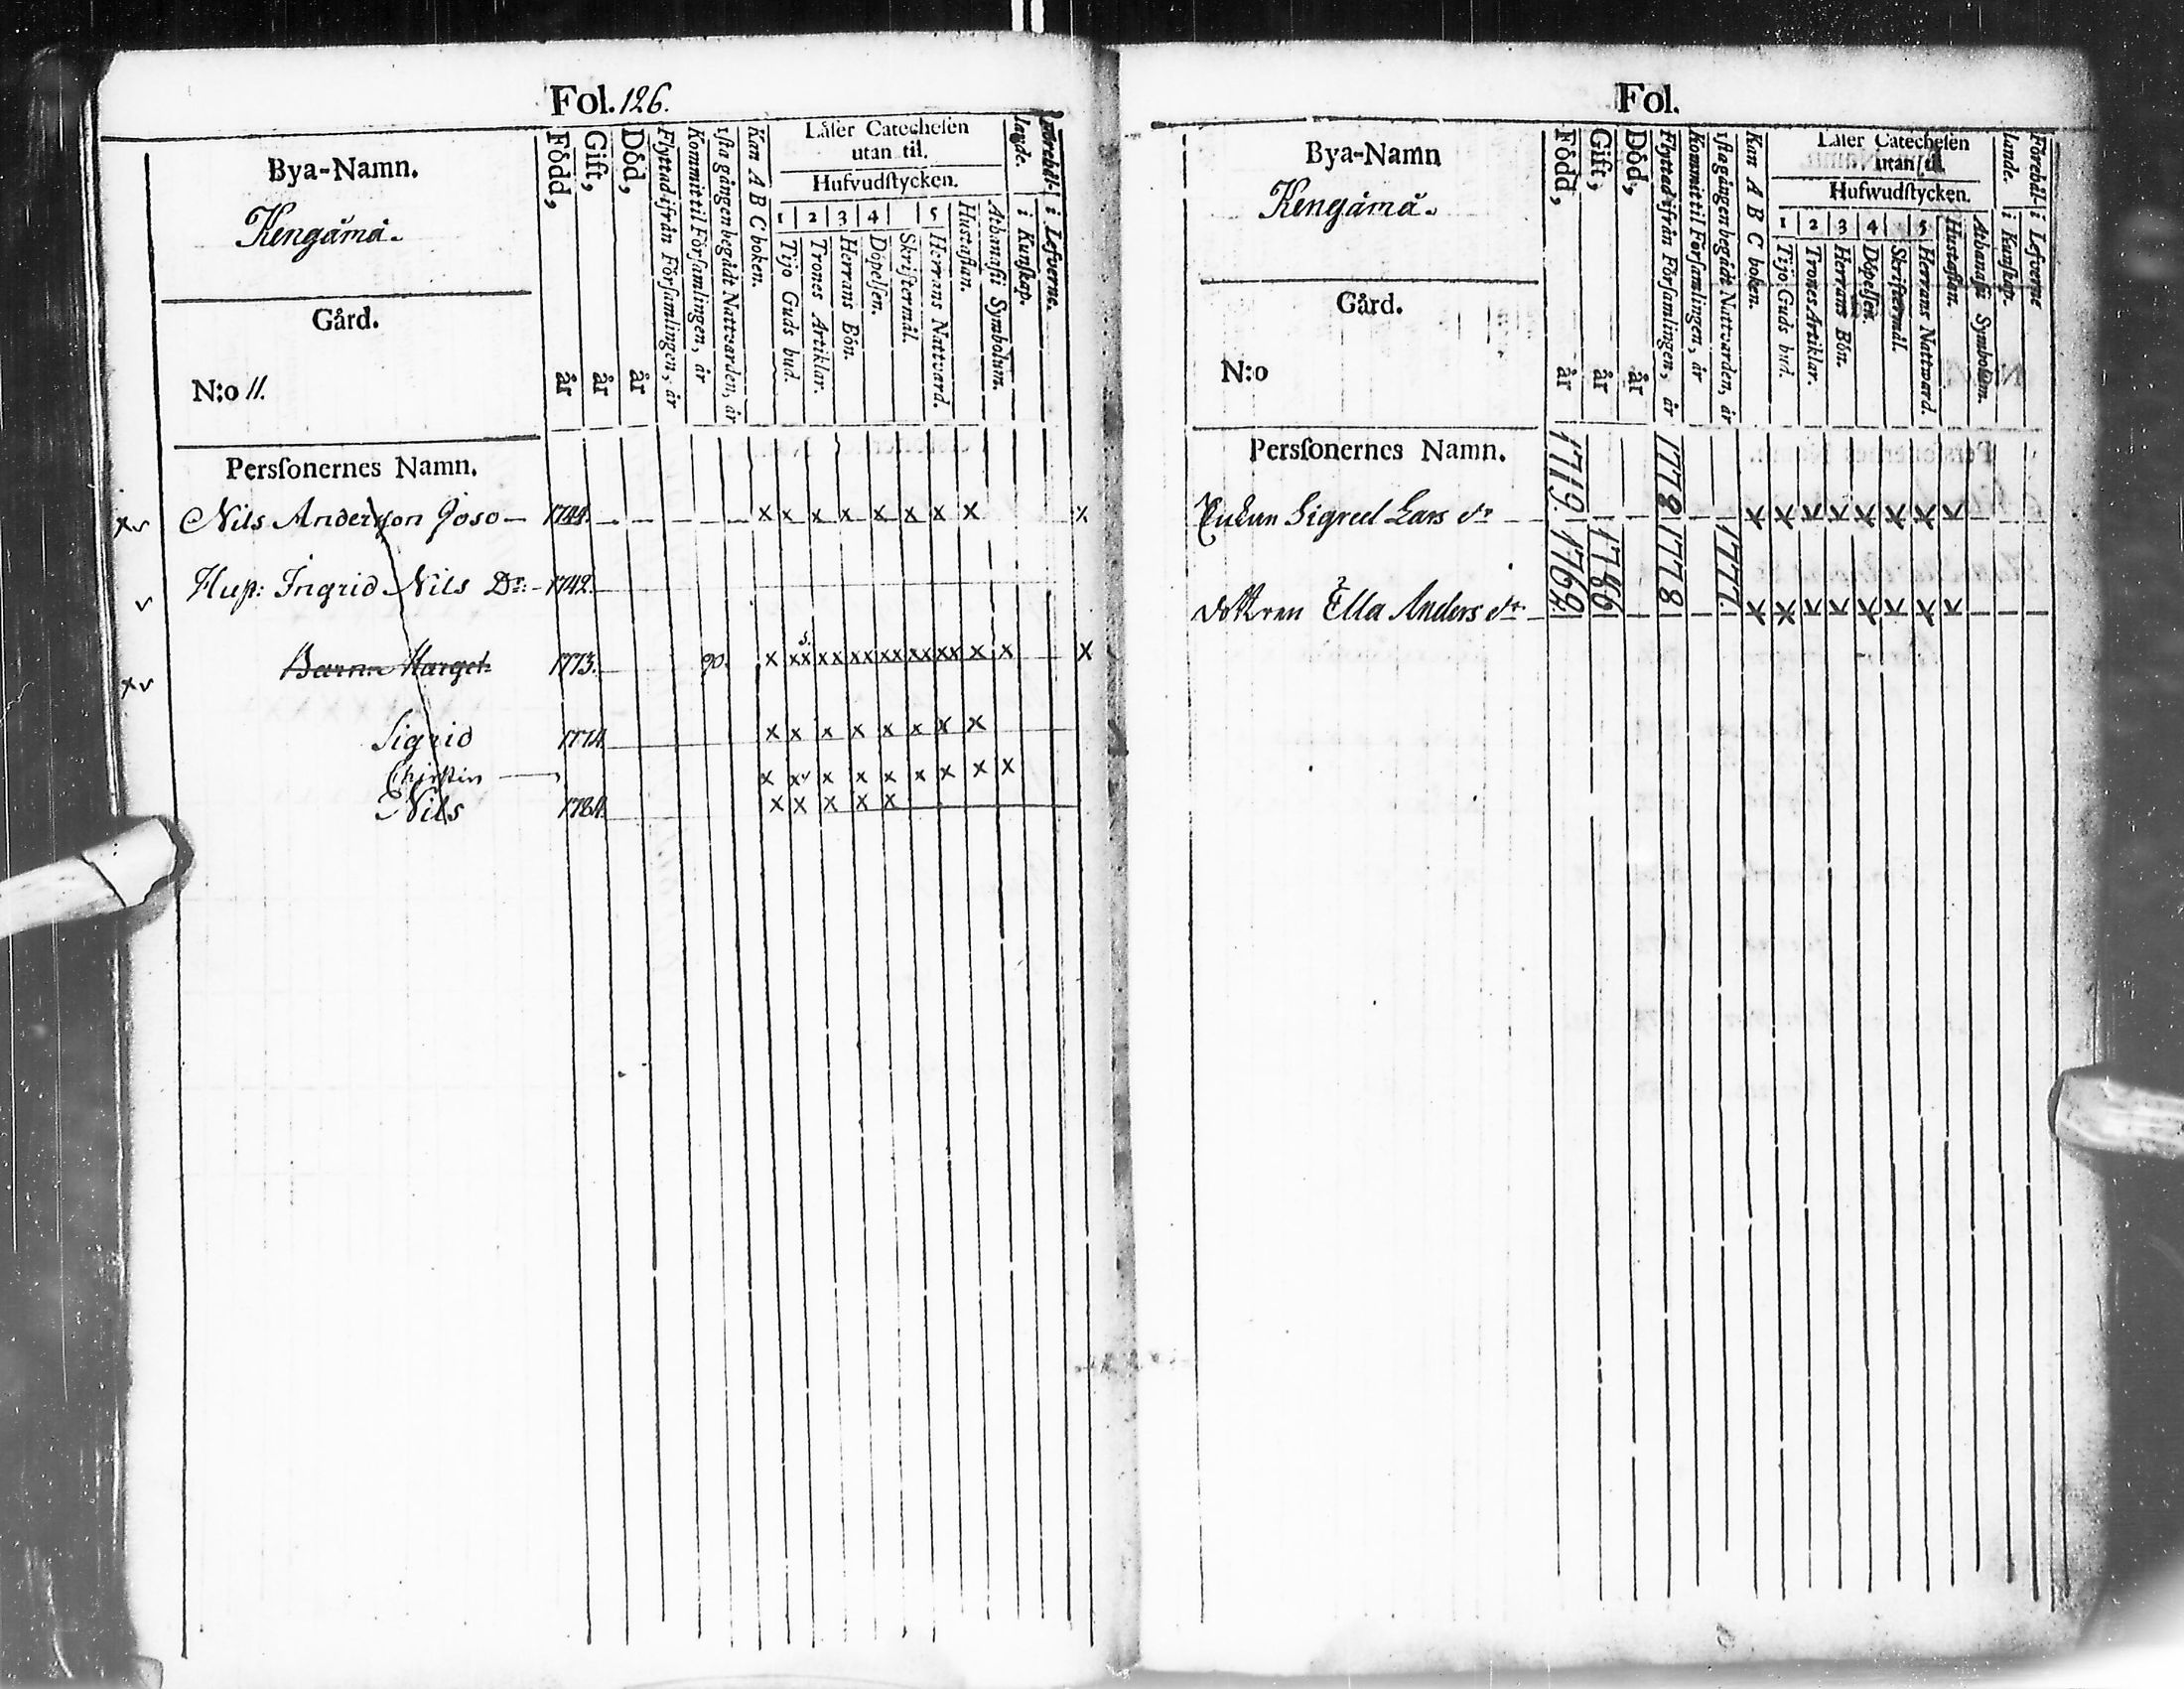 Fol. 126.
Bya-Namn.
Kengämä.
Gård.
N:o 11.
Född, år
Gift, år
Död, år
Flyttad ifrån Förſamlingen, år
Kommit til Förſamlingen, år
1ſta gången begådt Nattvarden, år
Kan A B C boken.
Låſer Catecheſen
utan til.
Hufvudſtycken.
1 2 3 4 5
Tijo Guds bud.
Trones Artiklar.
Herrans Bön.
Döpelſen.
Skriftermål.
Herrans Nattvard.
Hustaflan.
Athanaſii Symbolum.
Förehål-
lande.
i Kunſkap.
i Lefverne.
Perſonernes Namn.
xv Nils Andersson Joso 1744. x x x x x x x x x
v Hust: Ingrid Nils Dr: 1742.
xv Barnen Marget 1773. 90. x xx xx xx xx xx xx x x x
Sigrid 1774. x x x x x x x x
Chirstin x xv x x x x x x x
Nils 1784. x x x x x
Fol.
Bya-Namn
Kengämä.
Gård.
N:o
Född, år
Gift, år
Död, år
Flyttad ifrån Förſamlingen, år
Kommit til Förſamlingen, år
1ſta gången begådt Nattvarden, år
Kan A B C boken.
Låſer Catecheſen
utan til.
Hufwudſtycken.
1 2 3 4 5
Tijo Guds bud.
Trones Artiklar.
Herrans Bön.
Döpelſen.
Skriftermål.
Herrans Nattward.
Hustaflan.
Athanaſii Symbolum.
Förehål-
lande.
i Kunſkap.
i Lefverne
Perſonernes Namn.
Enkan Sigred Lars dr 1719. 1778 x x x x x x x x
dottren Ella Anders dr 1762. 1786 1778 1777. x x x x x x x x